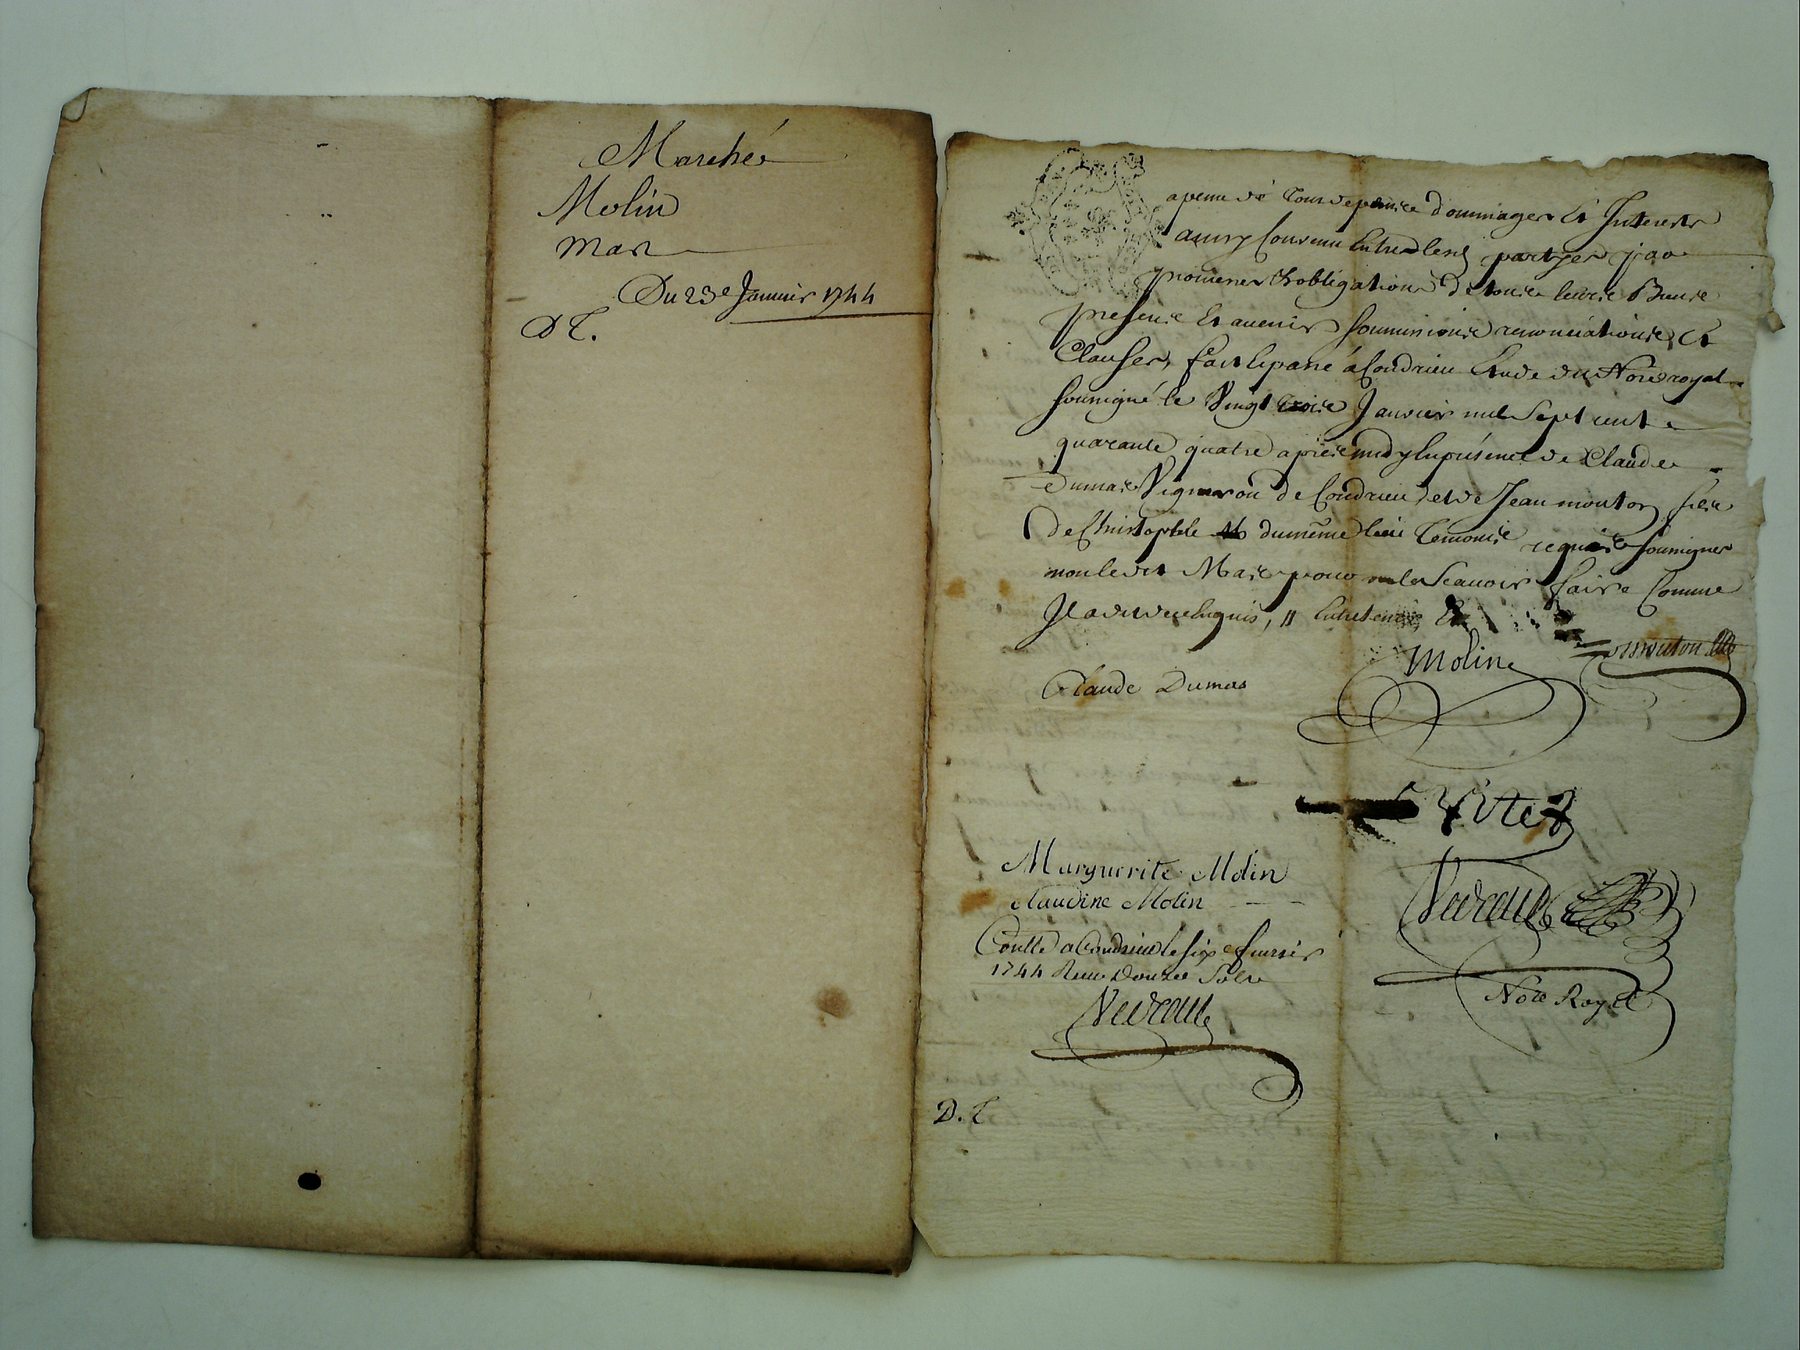 Marché
Molin
Mas
Du 23e Janvier 1744
D T.
a peine de tous depens dommages et Interests
ainsy Convenu Entre les partyes par
promesses & obligations de tous leurs Biens
presens et avenir soumissions renonciations, et
Clauses, fait et passé á Condrieu Etude du Nore royal
soussigné le Vingt trois Janvier mil sept cent
quarante quatre apres midy En présence de Claude
Dumas Vigneron de Condrieu, et de Jean mouton fils
de Christophle du même lieu temoins requis soussignes
non ledit Mas pour ne le scavoir faire Comme
Il a dit de ce Enquis, Et
Molin
mouton
Claude Dumas
Marguerite Molin
Claudine Molin
Contlé a Condrieu le six fevrier
1744 Reçu Douze Sols
Nevraud
Nevraud
Nore Royal
D. T